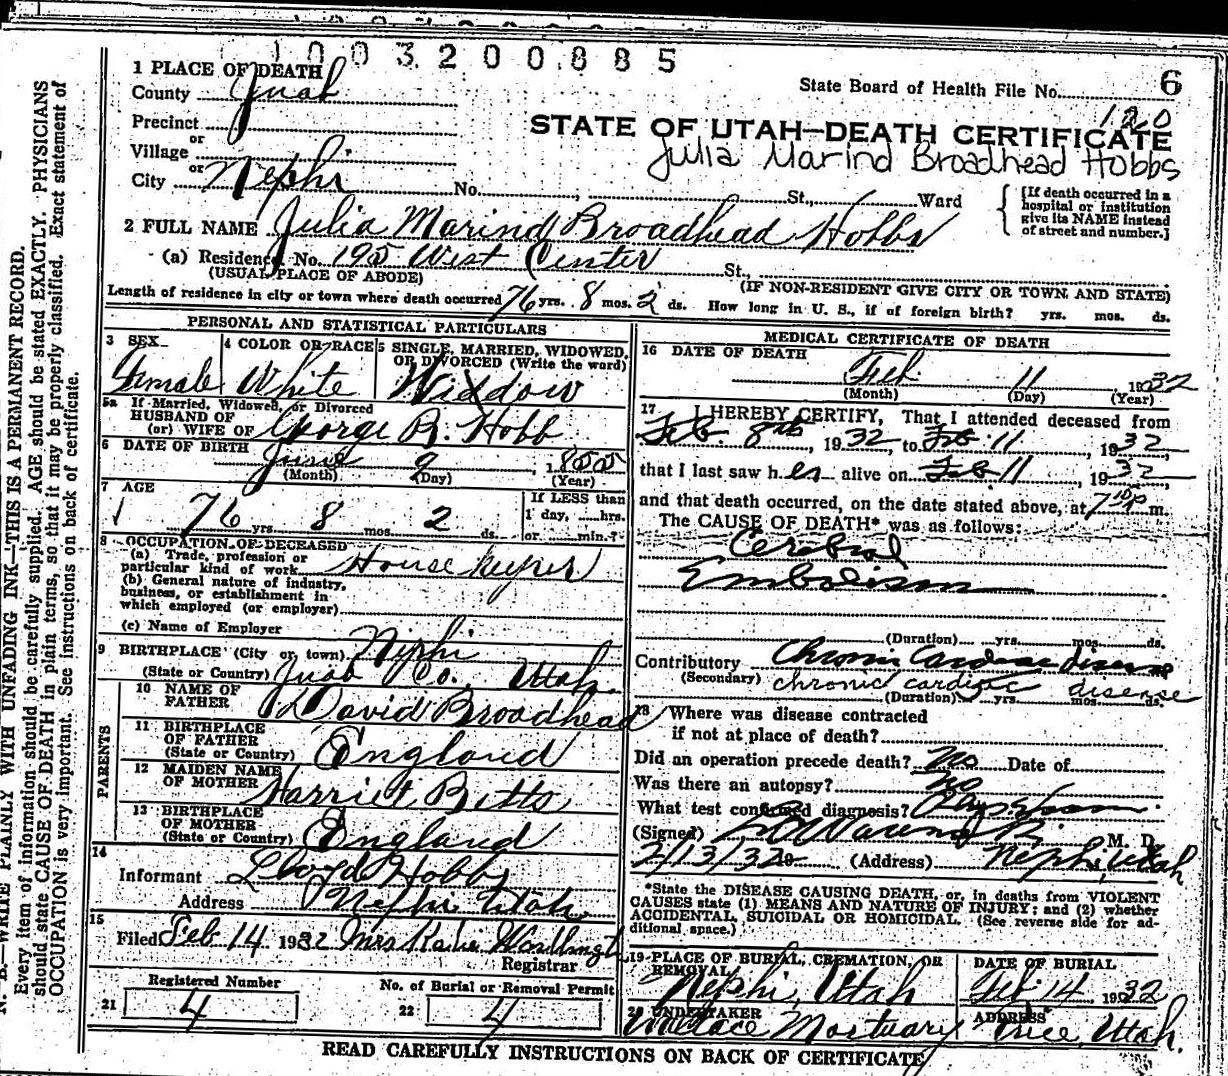 1003200885
6
State Board of Health File No.
120
STATE OF UTAH—DEATH CERTIFICATE
Julia Marind Broadhead Hobbs
1 PLACE OF DEATH
County Juab
Precinct
or
Village
or
City Nephi No. St., Ward
[If death occurred in a
hospital or institution
give its NAME instead
of street and number.]
2 FULL NAME Julia Marind Broadhead Hobbs
(a) Residence, No. 195 West Center St.,
(USUAL PLACE OF ABODE) (IF NON-RESIDENT GIVE CITY OR TOWN AND STATE)
Length of residence in city or town where death occurred 76 yrs. 8 mos. 2 ds. How long in U. S., if of foreign birth? yrs. mos. ds.
PERSONAL AND STATISTICAL PARTICULARS
3 SEX 4 COLOR OR RACE 5 SINGLE, MARRIED, WIDOWED,
OR DIVORCED (Write the word)
Female White Widdow
5a If Married, Widowed, or Divorced
HUSBAND OF
(or) WIFE OF George R. Hobb
6 DATE OF BIRTH June 9 1855
(Month) (Day) (Year)
7 AGE If LESS than
1 day, hrs.
76 yrs. 8 mos. 2 ds. or min.?
8 OCCUPATION OF DECEASED
(a) Trade, profession or
particular kind of work House keeper
(b) General nature of industry,
business, or establishment in
which employed (or employer)
(c) Name of Employer
9 BIRTHPLACE (City or town) Nephi
(State or Country) Juab Co., Utah
PARENTS
10 NAME OF
FATHER David Broadhead
11 BIRTHPLACE
OF FATHER
(State or Country) England
12 MAIDEN NAME
OF MOTHER Harriet Betts
13 BIRTHPLACE
OF MOTHER
(State or Country) England
14
Informant Lloyd Hobbs
Address Nephi Utah
15
Filed Feb 14 1932 Mrs
Registrar
Registered Number
21 4
No. of Burial or Removal Permit
22 4
MEDICAL CERTIFICATE OF DEATH
16 DATE OF DEATH
Feb 11, 1932
(Month) (Day) (Year)
17 I HEREBY CERTIFY, That I attended deceased from
Feb. 8th, 1932, to Feb 11, 1932,
that I last saw her alive on Feb 11, 1932
and that death occurred, on the date stated above, at 7 10 P m.
The CAUSE OF DEATH* was as follows:
Cerebral
Embolism
(Duration) yrs. mos. ds.
Contributory Chronic Cardiac disease
(Secondary) chronic cardiac disease
(Duration) yrs. mos. ds.
18 Where was disease contracted
if not at place of death?
Did an operation precede death? No Date of
Was there an autopsy? No
What test confirmed diagnosis?
(Signed) M. D.
2/13/32 (Address) Nephi, Utah
*State the DISEASE CAUSING DEATH, or, in deaths from VIOLENT
CAUSES state (1) MEANS AND NATURE OF INJURY; and (2) whether
ACCIDENTAL, SUICIDAL OR HOMICIDAL. (See reverse side for ad-
ditional space.)
19 PLACE OF BURIAL, CREMATION, OR
REMOVAL
Nephi, Utah
DATE OF BURIAL
Feb 14 1932
20 UNDERTAKER
Wallace Mortuary
ADDRESS
Price, Utah.
READ CAREFULLY INSTRUCTIONS ON BACK OF CERTIFICATE
N. B.—WRITE PLAINLY WITH UNFADING INK—THIS IS A PERMANENT RECORD.
Every item of information should be carefully supplied. AGE should be stated EXACTLY. PHYSICIANS
should state CAUSE OF DEATH in plain terms, so that it may be properly classified. Exact statement of
OCCUPATION is very important. See instructions on back of certificate.